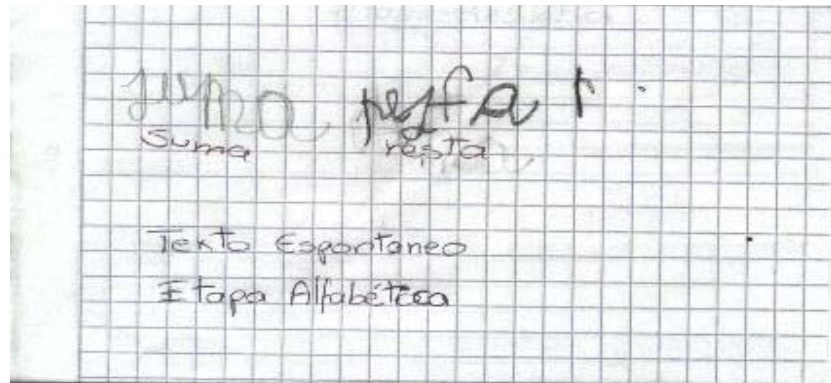 suma resta r
Suma resta
Texto Espontaneo
Etapa Alfabética